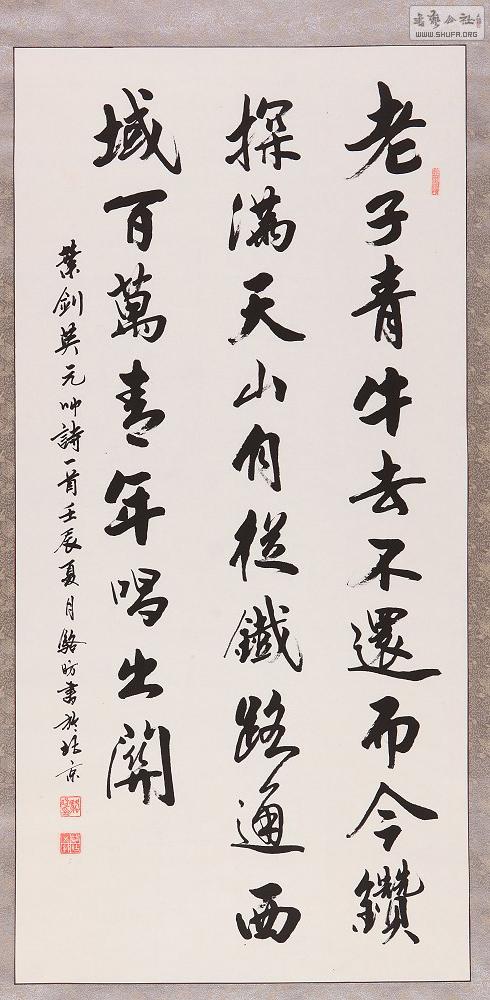 老子青牛去不還而今鑽
探滿天山自從鐵路通西
域百萬青年唱出關
葉劍英元帥詩一首壬辰夏月駱 書於北京
書藝公社
WWW.SHUFA.ORG